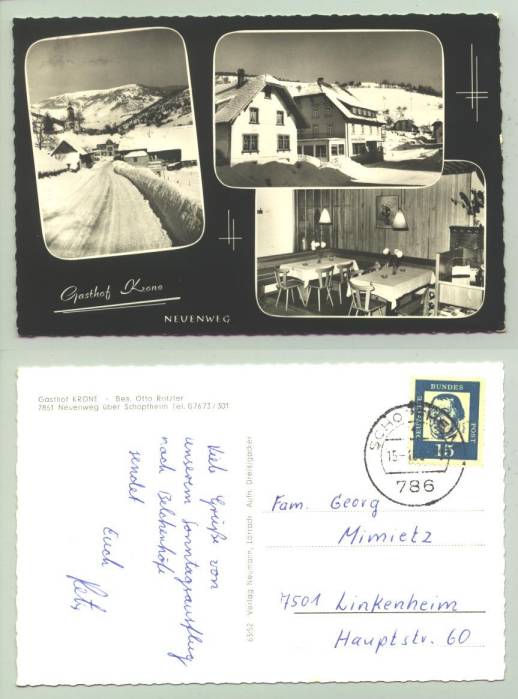 Gasthof Krone
NEUENWEG
Gasthof KRONE - Bes. Otto Rotzler
7861 Neuenweg über Schopfheim Tel. 07673/301
BUNDES
POST
DEUTSCHE
15
SCHOPFHEIM
15-
786
Viele Grüße von
unserem Sonntagsausflug
nach Belchenhöfe
sendet
Euch
6352 Verlag Neumann, Lörrach Aufn. Dreisigacker
Fam. Georg
Mimietz
7501 Linkenheim
Hauptstr. 60